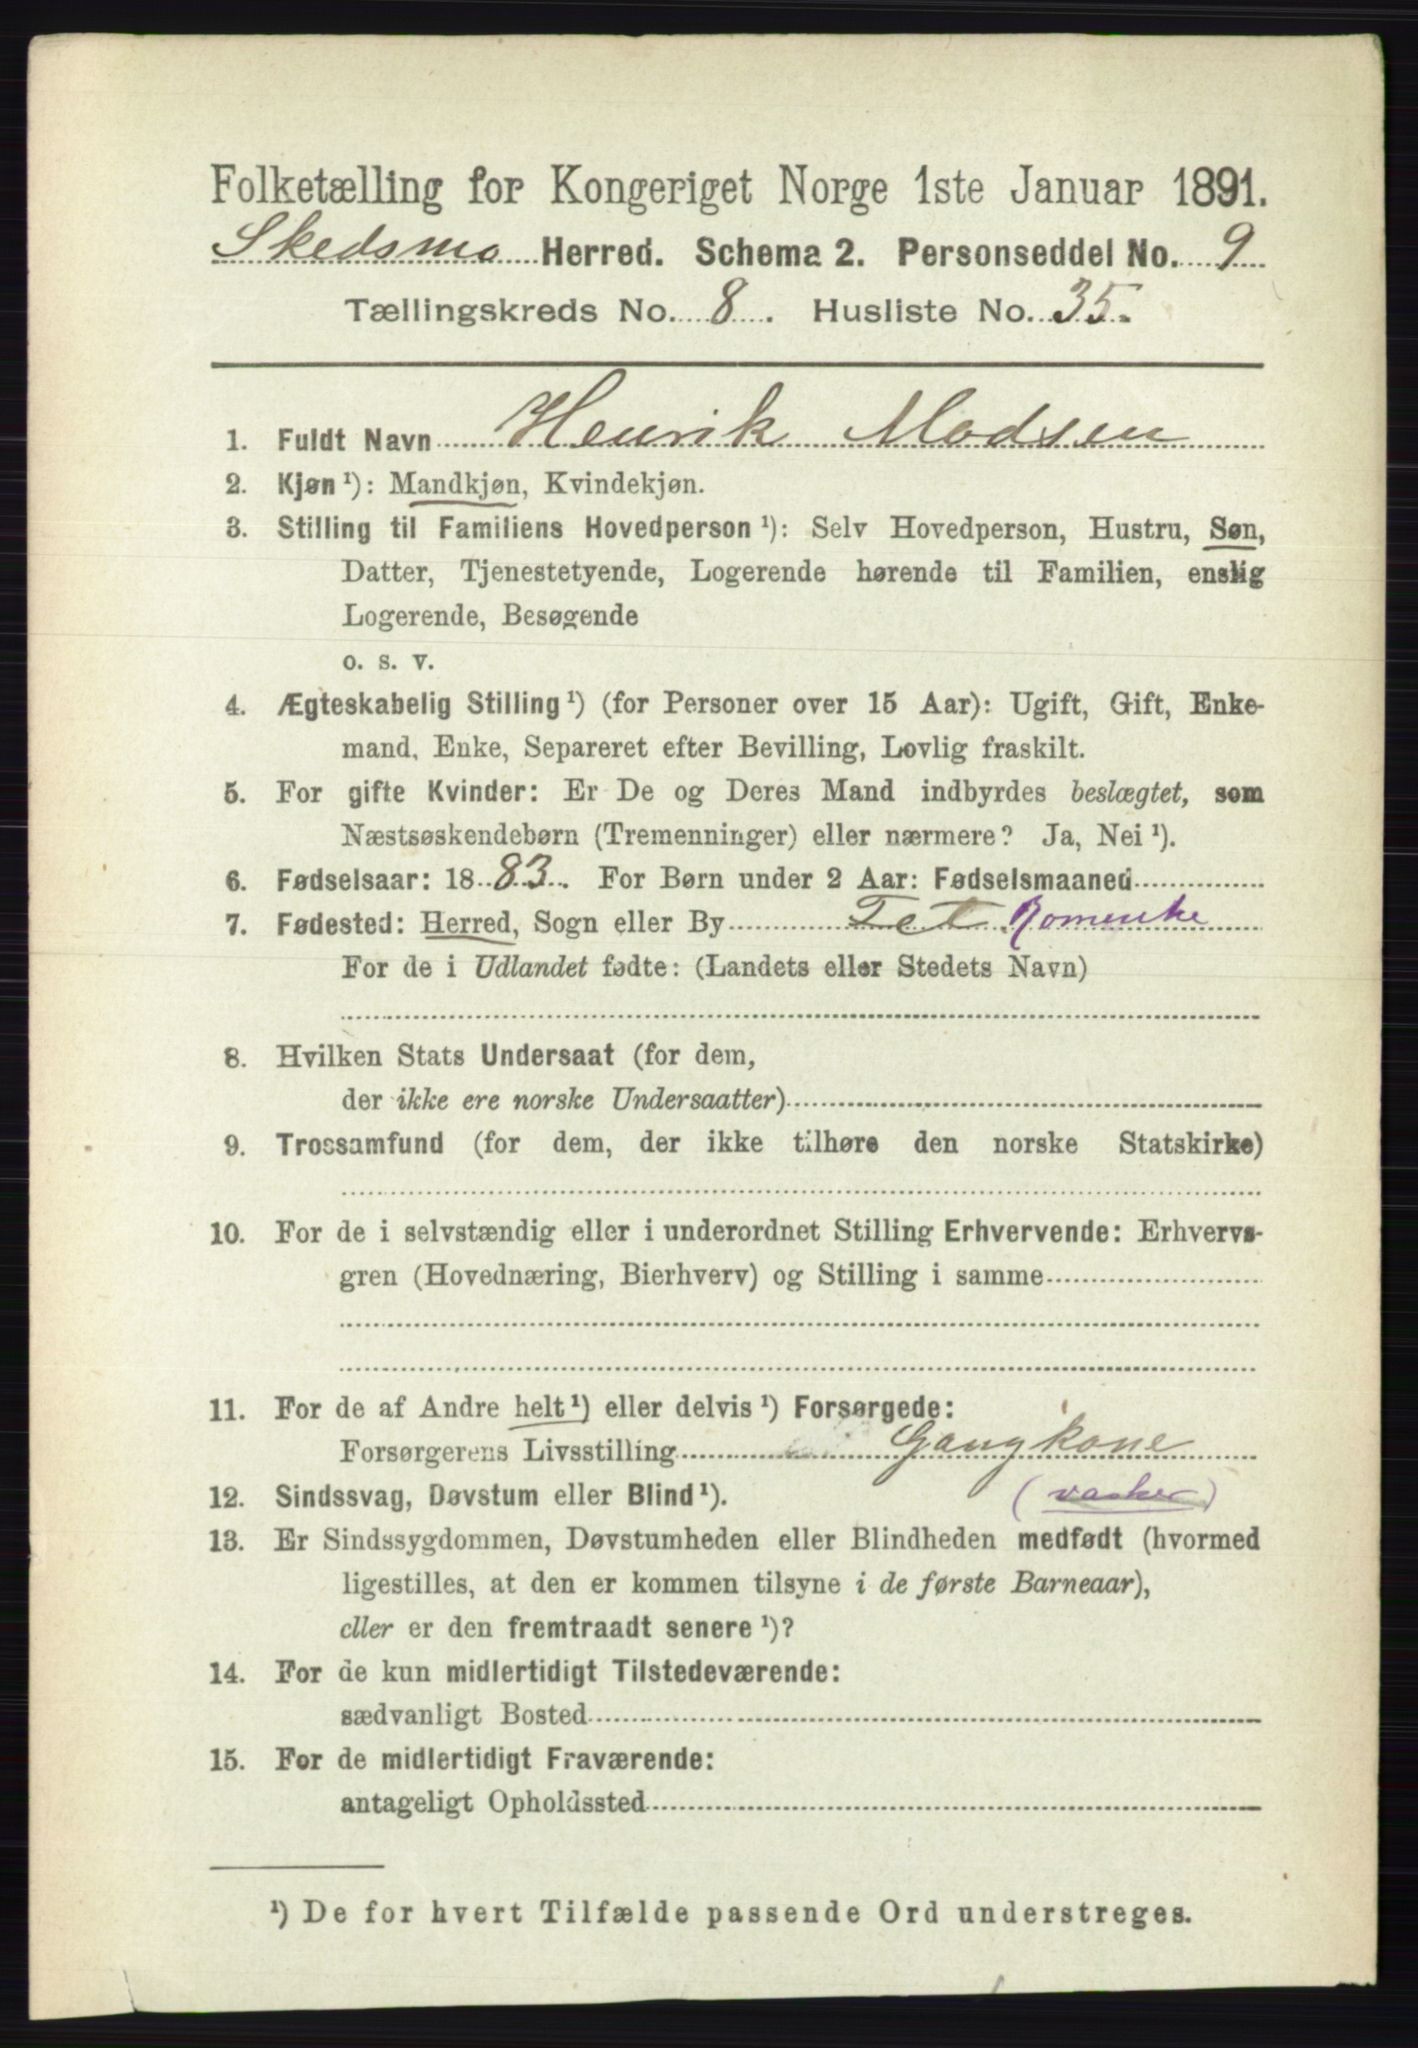 Folketælling for Kongeriget Norge 1ste Januar 1891.
Skedsmo Herred. Schema 2. Personseddel No. 9
Tællingskreds No. 8. Husliste No. 35.
1. Fuldt Navn Henrik Madsen
2. Kjøn ¹): Mandkjøn, Kvindekjøn.
3. Stilling til Familiens Hovedperson ¹): Selv Hovedperson, Hustru, Søn,
Datter, Tjenestetyende, Logerende hørende til Familien, enslig
Logerende, Besøgende
o. s. v.
4. Ægteskabelig Stilling ¹) (for Personer over 15 Aar): Ugift, Gift, Enke-
mand, Enke, Separeret efter Bevilling, Lovlig fraskilt.
5. For gifte Kvinder: Er De og Deres Mand indbyrdes beslægtet, som
Næstsøskendebørn (Tremenninger) eller nærmere? Ja, Nei ¹).
6. Fødselsaar: 1883. For Børn under 2 Aar: Fødselsmaaned
7. Fødested: Herred, Sogn eller By Fet Romerike
For de i Udlandet fødte: (Landets eller Stedets Navn)
8. Hvilken Stats Undersaat (for dem,
der ikke ere norske Undersaatter)
9. Trossamfund (for dem, der ikke tilhøre den norske Statskirke)
10. For de i selvstændig eller i underordnet Stilling Erhvervende: Erhvervs-
gren (Hovednæring, Bierhverv) og Stilling i samme
11. For de af Andre helt ¹) eller delvis ¹) Forsørgede:
Forsørgerens Livsstilling Gangkone
12. Sindssvag, Døvstum eller Blind ¹). (vasker)
13. Er Sindssygdommen, Døvstumheden eller Blindheden medfødt (hvormed
ligestilles, at den er kommen tilsyne i de første Barneaar),
eller er den fremtraadt senere ¹)?
14. For de kun midlertidigt Tilstedeværende:
sædvanligt Bosted
15. For de midlertidigt Fraværende:
antageligt Opholdssted
¹) De for hvert Tilfælde passende Ord understreges.